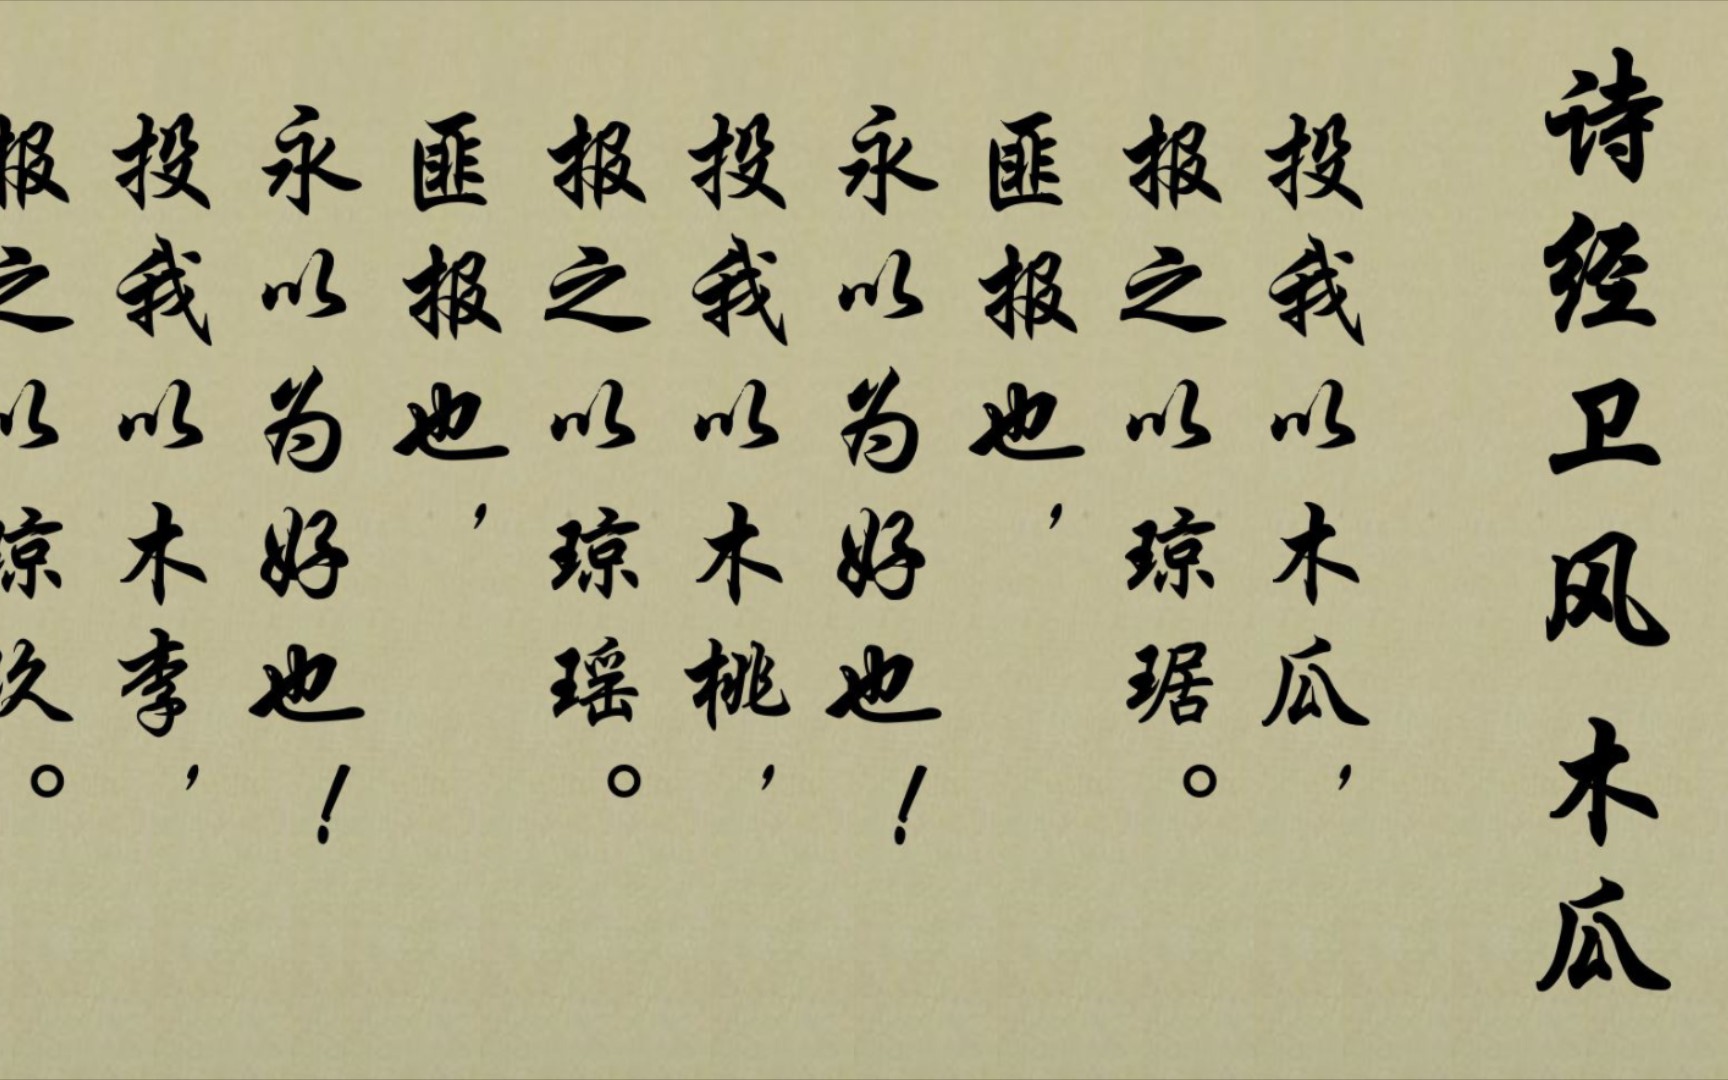 诗经卫风木瓜
投我以木瓜，
报之以琼琚。
匪报也，
永以为好也！
投我以木桃，
报之以琼瑶。
匪报也，
永以为好也！
投我以木李，
报之以琼玖。